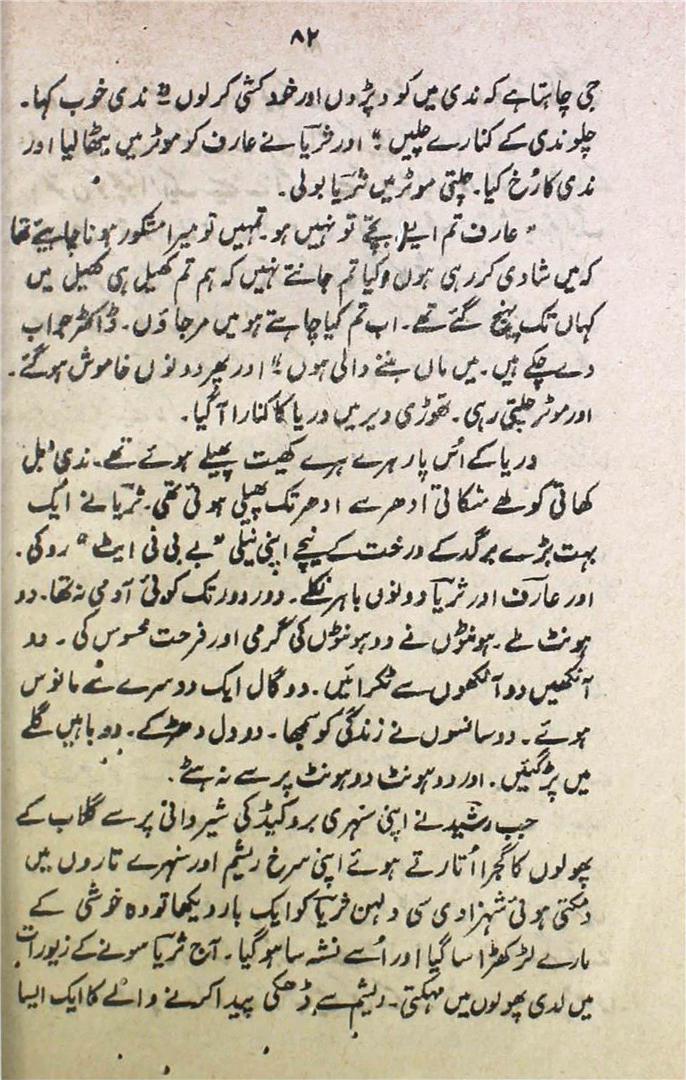 ۸۲
جی چاہتا ہے کہ ندی میں کود پڑوں اور خود کشی کر لوں" ندی خوب کہا۔
چلو ندی کے کنارے چلیں" اور ثریا نے عارف کو موٹر میں بیٹھا لیا اور
ندی کا رُخ کیا۔ چلتی موٹر میں ثریا بولی۔
"عارف تم ایسے بچے تو نہیں ہو۔ تمہیں تو میرا مشکور ہونا چاہیئے تھا
کہ میں شادی کر رہی ہوں کیا تم جانتے نہیں کہ ہم تم کھیل ہی کھیل میں
کہاں تک پہنچ گئے تھے۔ اب تم کیا چاہتے ہو میں مر جاؤں۔ ڈاکٹر جواب
دے چکے ہیں۔ میں ماں بننے والی ہوں"۔ اور پھر دونوں خاموش ہو گئے۔
اور موٹر چلتی رہی۔ تھوڑی دیر میں دریا کا کنارا آ گیا۔
دریا کے اُس پار ہرے ہرے کھیت پھیلے ہوئے تھے۔ ندی بل
کھاتی کولھے مٹکاتی ادھر سے ادھر تک پھیلی ہوئی تھی۔ ثریا نے ایک
بہت بڑے برگد کے درخت کے نیچے اپنی نیلی "بے بی فی ایٹ" روکی۔
اور عارف اور ثریا دونوں باہر نکلے۔ دور دور تک کوئی آدمی نہ تھا۔ دو
ہونٹ ملے۔ ہونٹوں نے دو ہونٹوں کی گرمی اور فرحت محسوس کی۔ دو
آنکھیں دو آنکھوں سے ٹکرائیں۔ دو گال ایک دوسرے سے مانوس
ہوئے۔ دو سانسوں نے زندگی کو سمجھا۔ دو دل دھڑکے۔ دو باہیں گلے
میں پڑ گئیں۔ اور دو ہونٹ دو ہونٹ پر سے نہ ہٹے۔
جب رشید نے اپنی سنہری بروکیڈ کی شیروانی پر سے گلاب کے
پھولوں کا گجرا اُتارتے ہوئے اپنی سرخ ریشم اور سنہرے تاروں میں
دمکتی ہوئی شہزادی سی دلہن ثریا کو ایک بار دیکھا تو وہ خوشی کے
مارے لڑکھڑا سا گیا اور اُسے نشہ سا ہو گیا۔ آج ثریا سونے کے زیورات
میں لدی پھولوں میں مہکتی۔ ریشم سے ڈھکی پیدا کرنے والے کا ایک ایسا